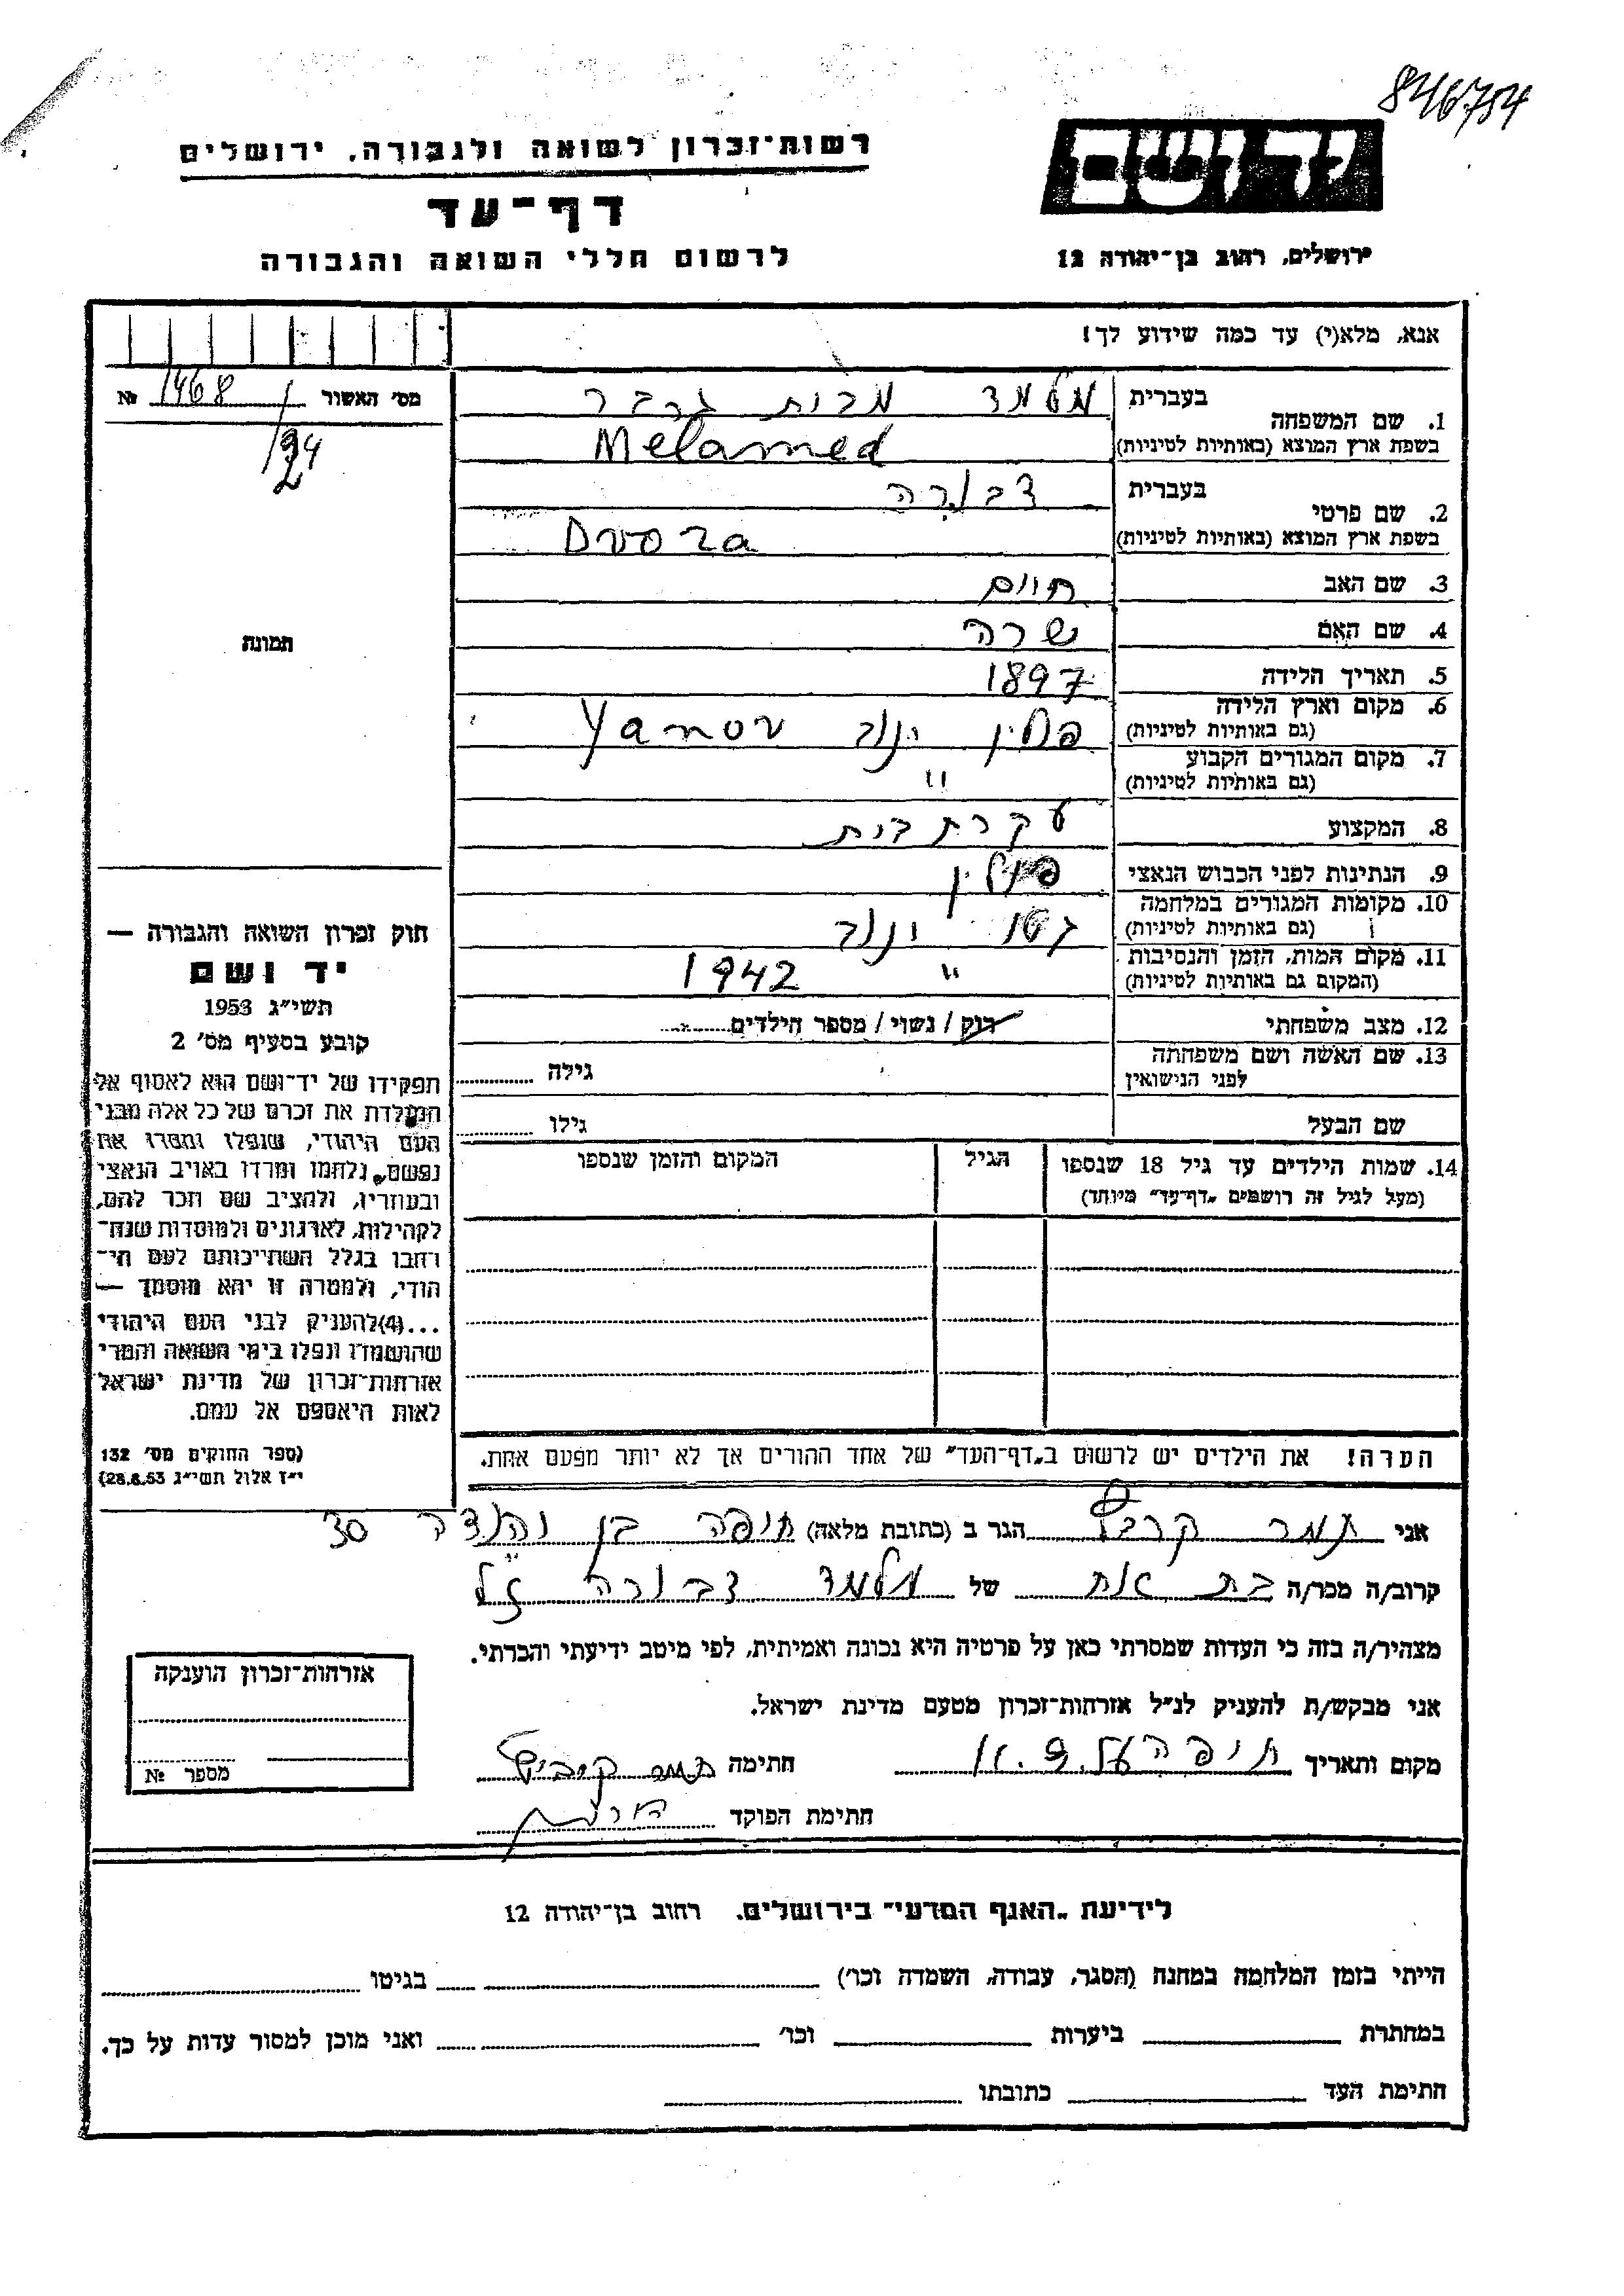 846754
רשות־זכרון לשואה ולגבורה, ירושלים
דף־עד
לרשום חללי השואה והגבורה
יד ושם
ירושלים, רחוב בן־יהודה 12
אנא, מלא(י) עד כמה שידוע לך!
מס' האשור 1468 №
/24
1. שם המשפחה
בעברית מלמד מבית גרבר
בשפת ארץ המוצא (באותיות לטיניות) Melamed
2. שם פרטי
בעברית דבורה
בשפת ארץ המוצא (באותיות לטיניות) Dvora
3. שם האב חיים
4. שם האם שרה
5. תאריך הלידה 1897
6. מקום וארץ הלידה
(גם באותיות לטיניות) פולין ינוב Yanov
7. מקום המגורים הקבוע "
(גם באותיות לטיניות)
8. המקצוע עקרת בית
9. הנתינות לפני הכבוש הנאצי פולין
10. מקומות המגורים במלחמה
(גם באותיות לטיניות) גטו ינוב
11. מקום המות, הזמן והנסיבות
(המקום גם באותיות לטיניות) " 1942
12. מצב משפחתי רוק / נשוי / מספר הילדים
13. שם האשה ושם משפחתה
לפני הנישואין גילה
שם הבעל גילו
14. שמות הילדים עד גיל 18 שנספו הגיל המקום והזמן שנספו
(מעל לגיל זה רושמים "דף־עד" מיוחד)
הערה! את הילדים יש לרשום ב"דף־העד" של אחד ההורים אך לא יותר מפעם אחת.
תמונה
חוק זכרון השואה והגבורה —
יד ושם
תשי״ג 1953
קובע בסעיף מס' 2
תפקידו של יד־ושם הוא לאסוף אל
המולדת את זכרם של כל אלה מבני
העם היהודי, שנפלו ומסרו את
נפשם, נלחמו ומרדו באויב הנאצי
ובעוזריו, ולהציב שם וזכר להם,
לקהילות, לארגונים ולמוסדות שנח־
רחבו בגלל השתייכותם לעם הי־
הודי, ולמטרה זו יהא מוסמך —
...(4) להעניק לבני העם היהודי
שהושמדו ונפלו בימי השואה והמרי
אזרחות־זכרון של מדינת ישראל
לאות היאספם אל עמם.
(ספר החוקים מס' 132
י״ז אלול תשי״ג 28.8.53)
אני תמר הגר ב (כתובת מלאה) חיפה בן יהודה 30
קרוב/ה מכר/ה בת אח של מלמד דבורה ז"ל
מצהיר/ה בזה כי העדות שמסרתי כאן על פרטיה היא נכונה ואמיתית, לפי מיטב ידיעתי והכרתי.
אני מבקש/ת להעניק לנ״ל אזרחות־זכרון מטעם מדינת ישראל.
מקום ותאריך חיפה חתימה תמר
חתימת הפוקד
אזרחות־זכרון הוענקה
מספר №
לידיעת "האגף המדעי" בירושלים, רחוב בן־יהודה 12
הייתי בזמן המלחמה במחנה (הסגר, עבודה, השמדה וכו') בגיטו
במחתרת ביערות וכו' ואני מוכן למסור עדות על כך.
חתימת העד כתובתו